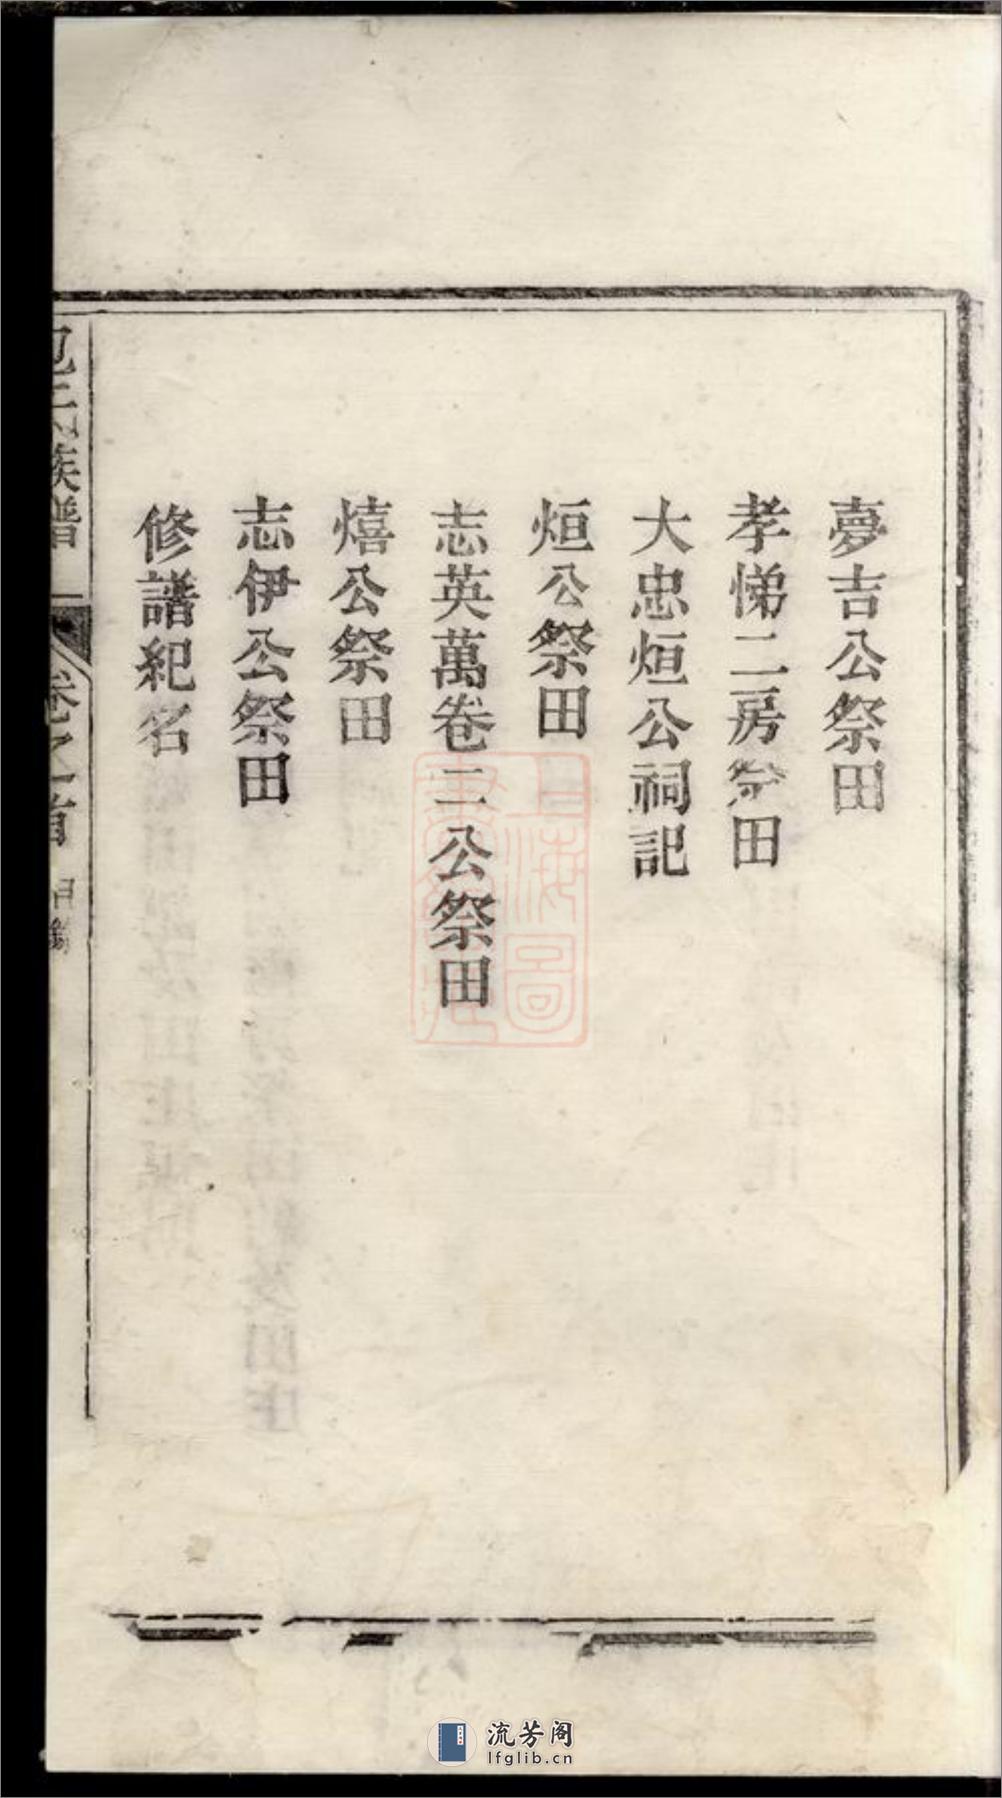 夢吉公祭田
孝悌二房祭田
大忠烜公祠記
烜公祭田
志英萬卷二公祭田
熺公祭田
志伊公祭田
修譜紀名
氏族譜
卷之首
上海圖
流芳阁
lfglib.cn